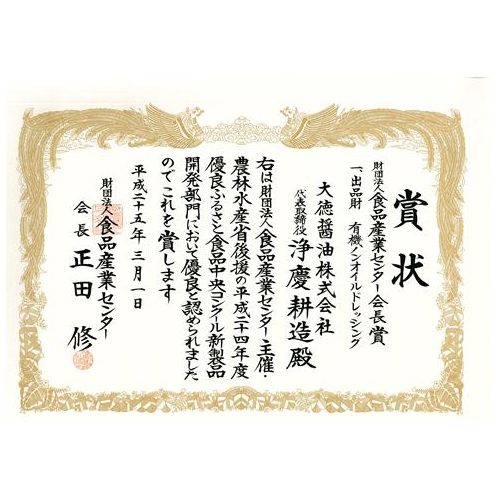 賞状
財団法人食品産業センター会長賞
一、出品財　有機ノンオイルドレッシング
大徳醤油株式会社
代表取締役　浄慶耕造殿
右は財団法人食品産業センター主催・
農林水産省後援の平成二十四年度
優良ふるさと食品中央コンクール新製品
開発部門において優良と認められました
のでこれを賞します
平成二十五年三月一日
財団法人食品産業センター
会長　正田　修